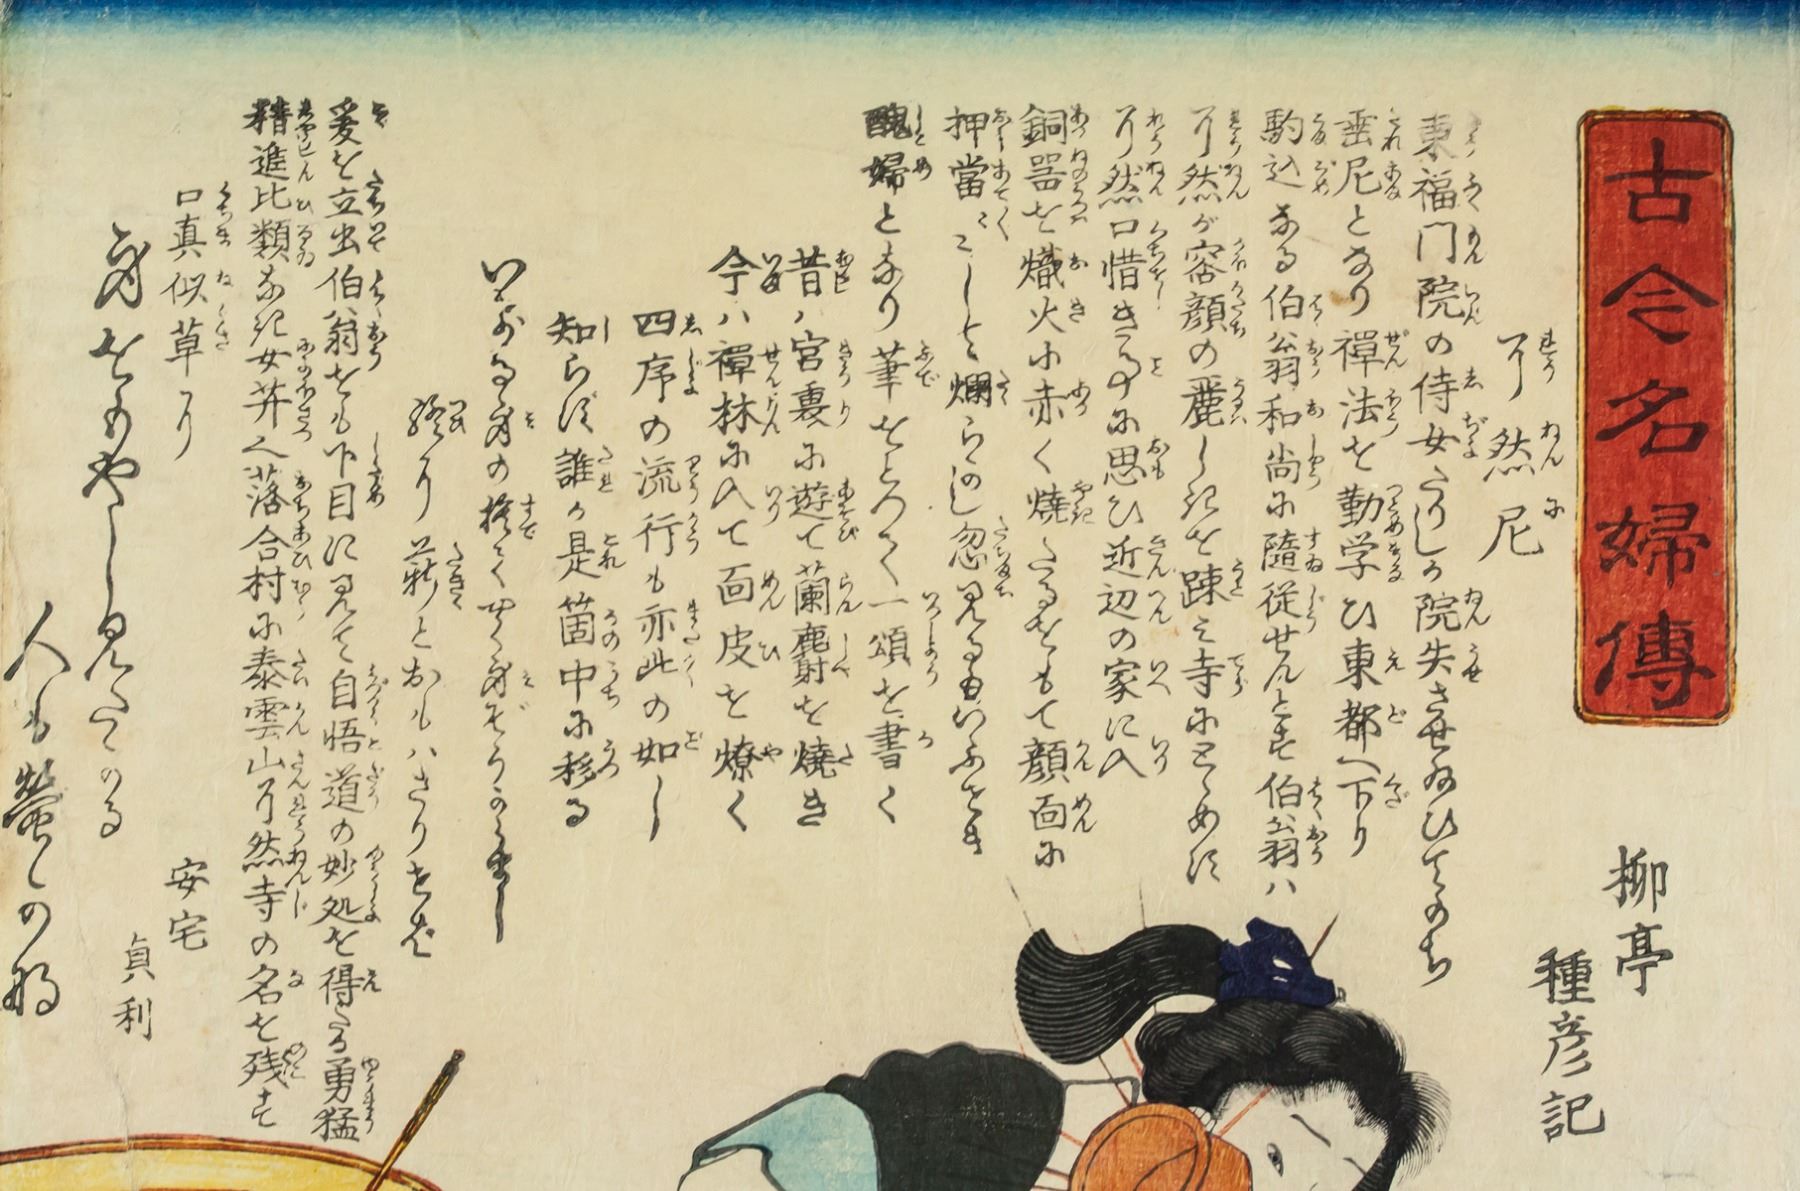 古今名婦傳
柳亭
種彦記
了然尼
東福門院の侍女たりしが院失させ給ひてのち
垂尼となり禅法を勤学ひ東都へ下り
駒込なる伯翁和尚に随従せんとす伯翁ハ
了然が容顔の麗しきを疎み寺にとゞめず
了然口惜きことに思ひ近辺の家に入
銅器を熾火に赤く焼たるをもて顔面に
押當〻〻して爛らかし忽見るまにいふせき
醜婦となり筆をとつて一頌を書く
昔ハ宮裏に遊て蘭麝を焼き
今ハ禅林に入て面皮を燎く
四序の流行も亦此の如し
知らず誰か是箇中に移る
いける身の捨てく
終り薪とおもハさりせば
爰を立出伯翁をも下目に見て自悟道の妙処を得たる勇猛
精進比類なき女丼へ落合村に泰雲山了然寺の名を残す
口真似草に
安宅
貞利
身をもやし見たてる
人も螢の